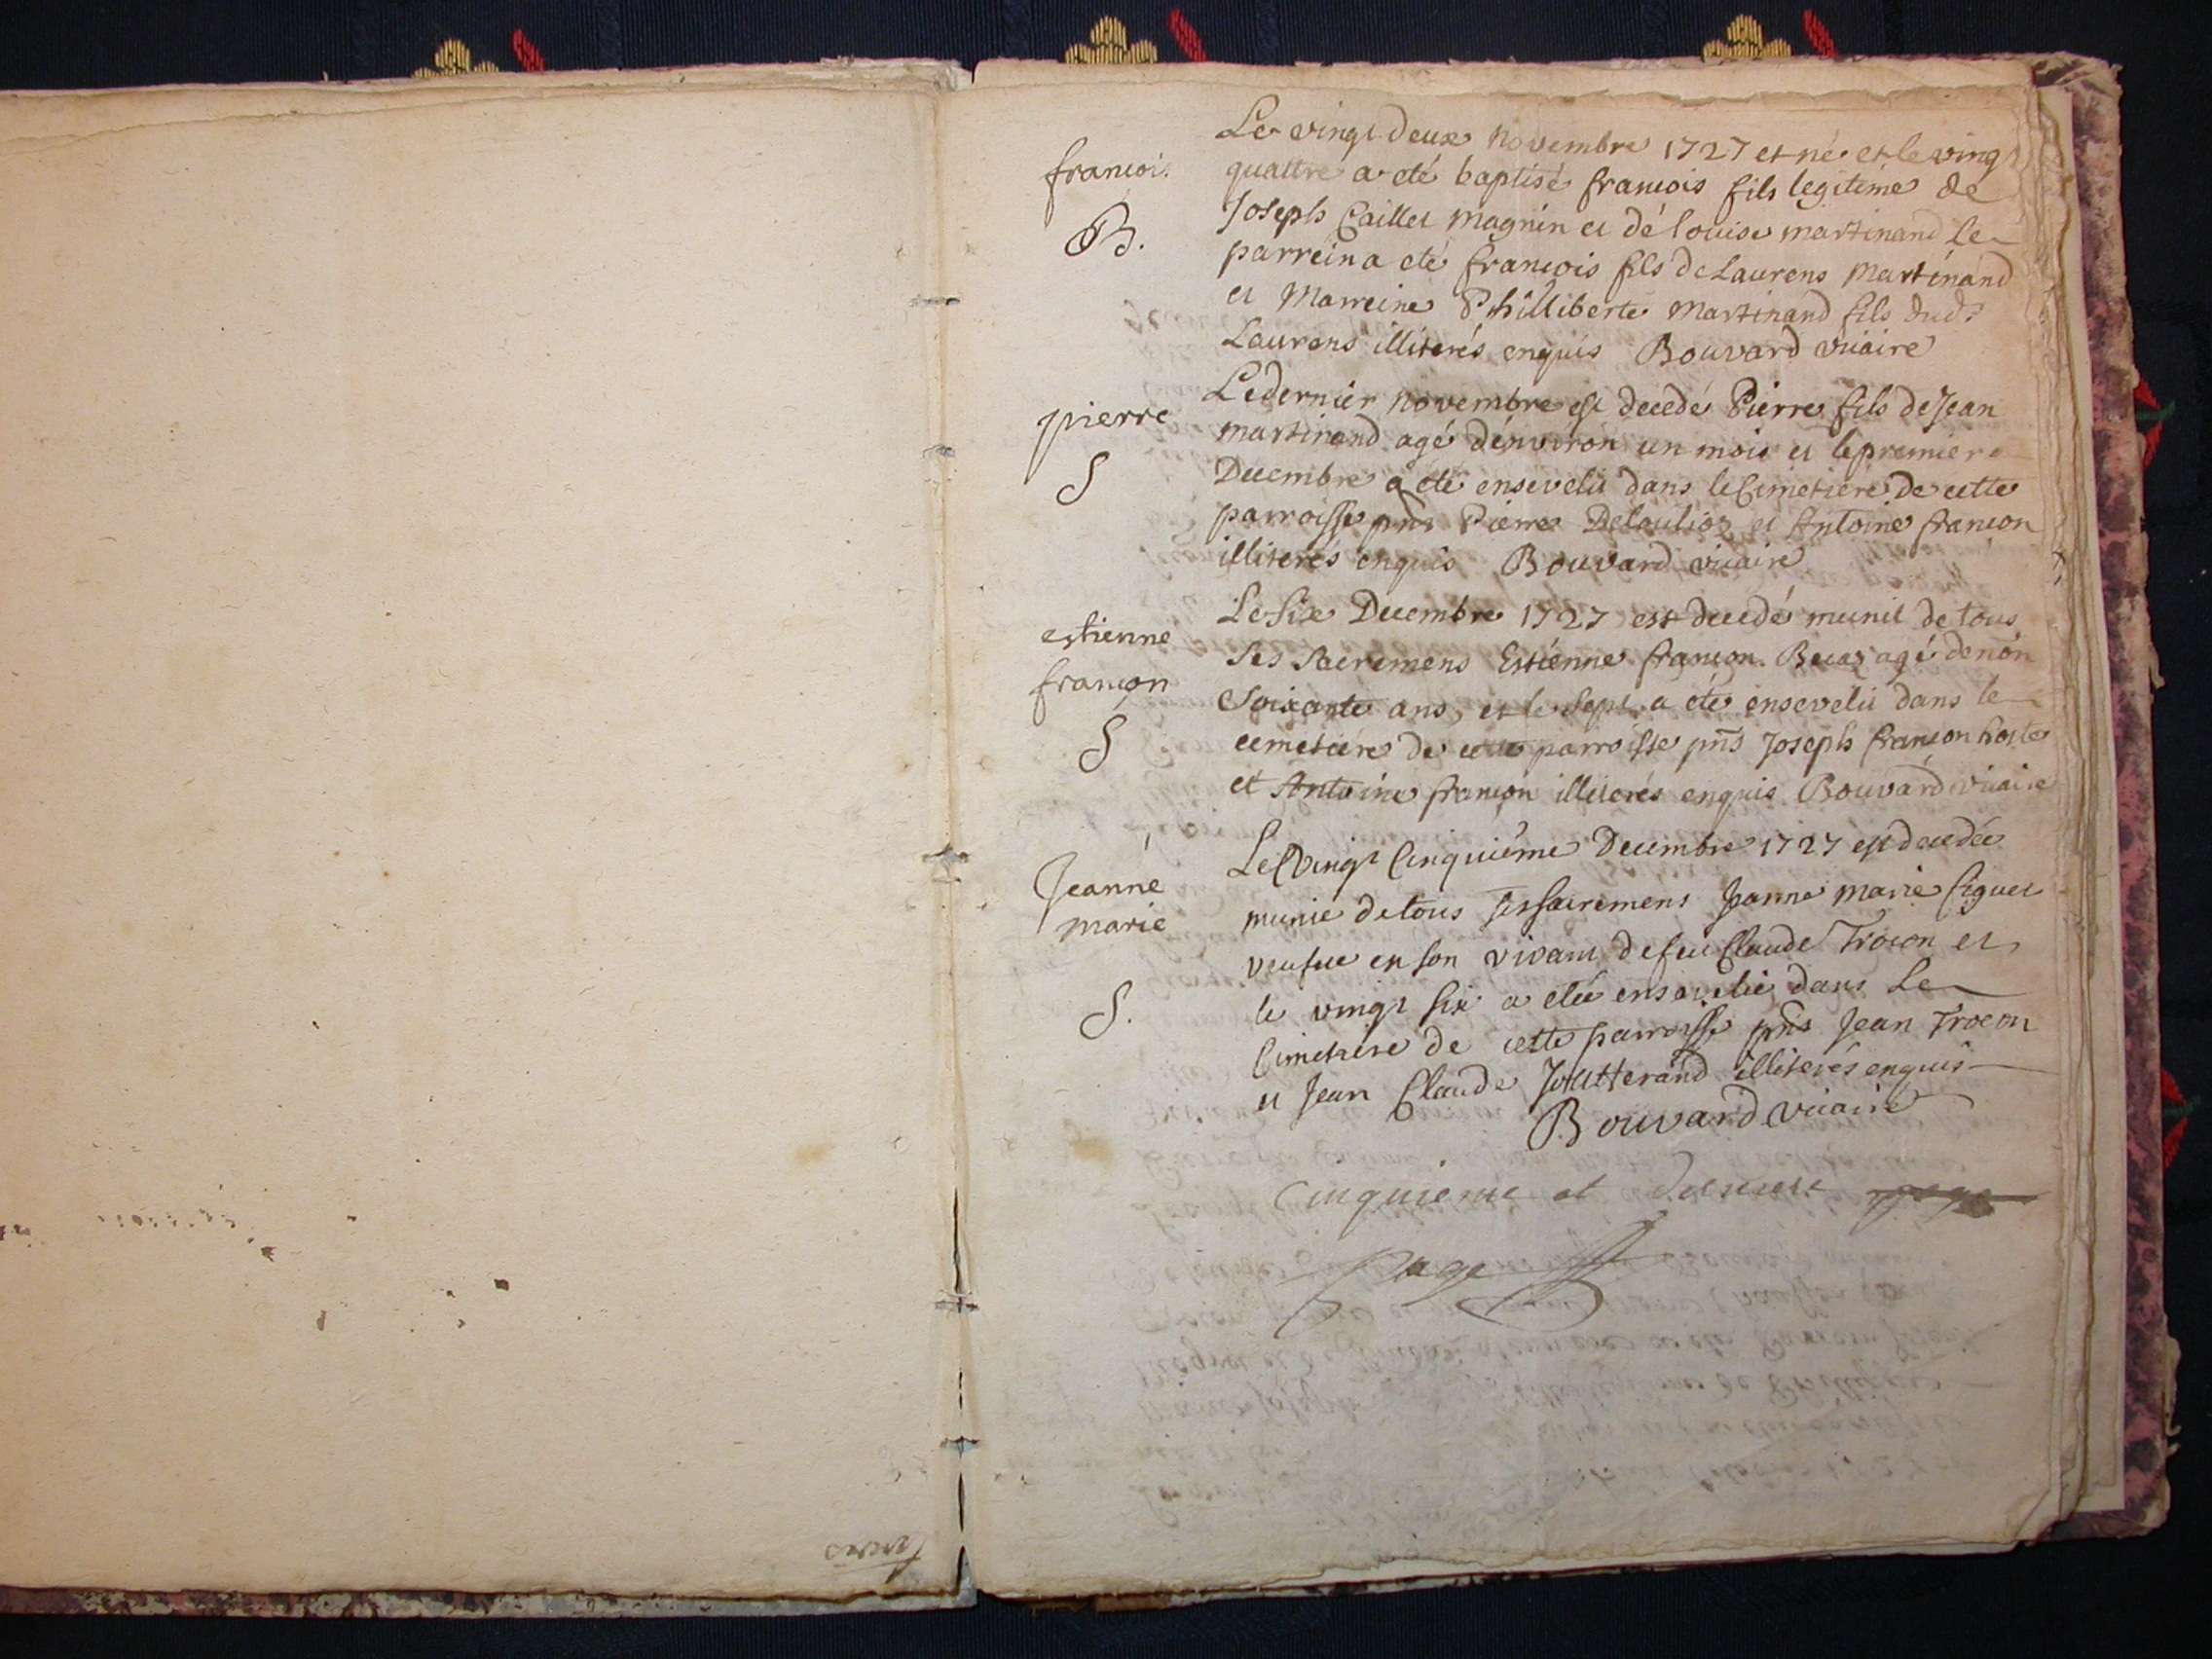 françois
B.
Le vingt deux novembre 1727 est né et le vingt
quattre a eté baptisé françois fils legitime de
Joseph Caillet Magnin et dé Louise martinand Le
parrein a eté françois fils de Laurens Martinand
et Marreine Philliberte Martinand fils dud.
Laurens illiterés enquis Bouvard vicaire
pierre
S
Le dernier novembre est decedé Pierre fils de Jean
martinand agé d'environ un mois et le premier
Decembre a eté ensevelit dans le Cimetiere de cette
parroisse pnts Pierre et Antoine françon
illiterés enquis Bouvard vicaire
estienne
françon
S
Le Six Decembre 1727 est decedé munit de tous
ses Sacremens Estienne françon. agé denon
Soixante ans, et le Sept a eté ensevelit dans le
cemetiere de cette parroisse pnts Joseph françon hoste
et Antoine françon illiterés enquis Bouvard vicaire
Jeanne
marie
S.
Le Vingt Cinquiéme Decembre 1727 est decedée
munie de tous ses sacremens Janne Marie
veufue en son vivant de feu Claude Trocon et
le vingt six a eteé ensevelie dans Le
Cimetiere de cette parroisse pnts Jean Trocon
et Jean Claude illiterés enquis
Bouvard vicaire
Cinquieme et derniere page
page